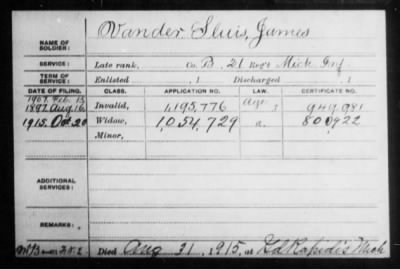 NAME OF SOLDIER: Vander Sluis, James
SERVICE: Late rank, Co. B. 21 Reg't Mich Inf
TERM OF SERVICE: Enlisted , 1 Discharged , 1
DATE OF FILING. CLASS. APPLICATION NO. LAW. CERTIFICATE NO.
1907. Feb. 13
1897 Aug 16 Invalid, 1,195,776 949,981
1915. Oct 20 Widow, 1,054,729 a. 800922
Minor,
ADDITIONAL SERVICES:
REMARKS:
Died Aug 31, 1915, at Gd Rapids Mich